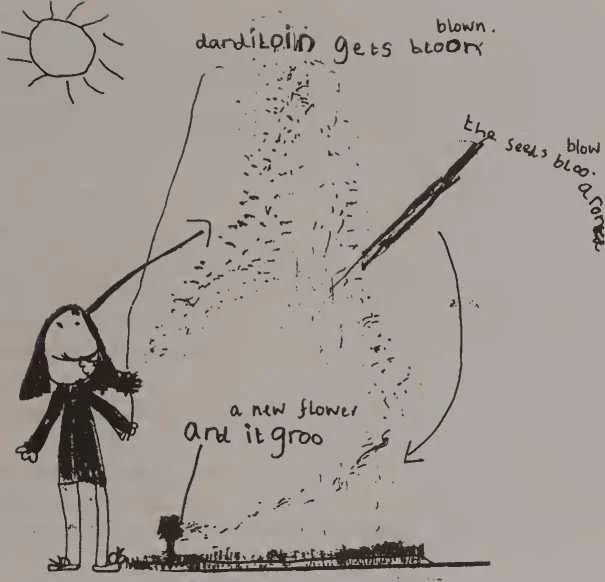 blown.
danditoin gets bloon
the seeds blow
bloo.
aroned
a new flower
And it groo